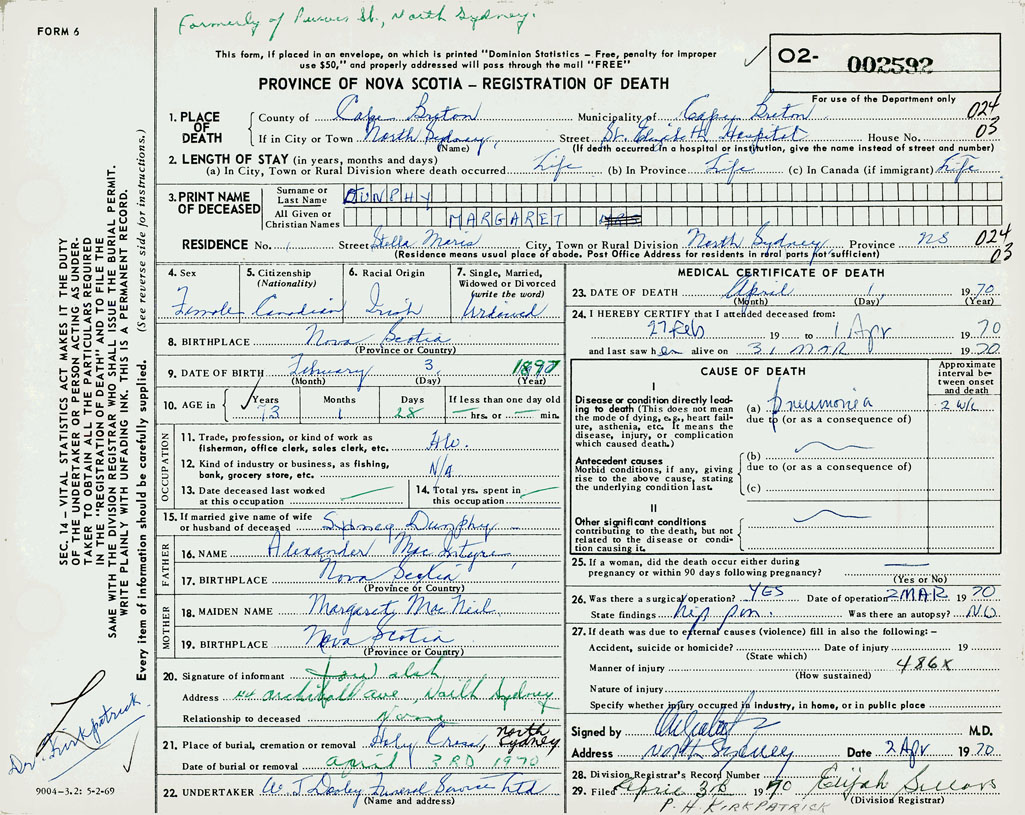 FORM 6
Formerly of Purves St., North Sydney.
This form, if placed in an envelope, on which is printed "Dominion Statistics – Free, penalty for improper
use $50," and properly addressed will pass through the mail "FREE"
PROVINCE OF NOVA SCOTIA – REGISTRATION OF DEATH
02- 002592
For use of the Department only
1. PLACE OF DEATH County of Cape Breton Municipality of Cape Breton 024
If in City or Town North Sydney, Street St. Elizabeth Hospital House No. 03
(Name) (If death occurred in a hospital or institution, give the name instead of street and number)
2. LENGTH OF STAY (in years, months and days)
(a) In City, Town or Rural Division where death occurred Life (b) In Province Life (c) In Canada (if immigrant) Life
3. PRINT NAME OF DECEASED Surname or Last Name DUNPHY
All Given or Christian Names MARGARET MRS
RESIDENCE No. Street Stella Maris City, Town or Rural Division North Sydney Province NS 024
(Residence means usual place of abode. Post Office Address for residents in rural parts not sufficient) 03
4. Sex Female
5. Citizenship (Nationality) Canadian
6. Racial Origin Irish
7. Single, Married, Widowed or Divorced (write the word) Widowed
8. BIRTHPLACE Nova Scotia
(Province or Country)
9. DATE OF BIRTH February 3, 1897
(Month) (Day) (Year)
10. AGE in Years 73 Months 1 Days 28 If less than one day old — hrs. or — min.
OCCUPATION
11. Trade, profession, or kind of work as fisherman, office clerk, sales clerk, etc. H.W.
12. Kind of industry or business, as fishing, bank, grocery store, etc. N/A
13. Date deceased last worked at this occupation —
14. Total yrs. spent in this occupation —
15. If married give name of wife or husband of deceased Sydney Dunphy
FATHER
16. NAME Alexander MacIntyre
17. BIRTHPLACE Nova Scotia
(Province or Country)
MOTHER
18. MAIDEN NAME Margaret MacNeil
19. BIRTHPLACE Nova Scotia
(Province or Country)
20. Signature of informant
Address 44 Archibald Ave, North Sydney
Relationship to deceased
21. Place of burial, cremation or removal Holy Cross, North Sydney
Date of burial or removal April 3RD 1970
22. UNDERTAKER W. J. Dooley Funeral Service Ltd
(Name and address)
MEDICAL CERTIFICATE OF DEATH
23. DATE OF DEATH April 1, 1970
(Month) (Day) (Year)
24. I HEREBY CERTIFY that I attended deceased from:
27 Feb 19 to 1 Apr 1970
and last saw her alive on 31 MAR 1970
CAUSE OF DEATH
Approximate interval between onset and death
I
Disease or condition directly leading to death (This does not mean the mode of dying, e.g., heart failure, asthenia, etc. It means the disease, injury, or complication which caused death.)
(a) pneumonia 2 wk
due to (or as a consequence of)
Antecedent causes
Morbid conditions, if any, giving rise to the above cause, stating the underlying condition last.
(b)
due to (or as a consequence of)
(c)
II
Other significant conditions
contributing to the death, but not related to the disease or condition causing it.
25. If a woman, did the death occur either during pregnancy or within 90 days following pregnancy? —
(Yes or No)
26. Was there a surgical operation? YES Date of operation 2 MAR 1970
State findings hip pin. Was there an autopsy? NO
27. If death was due to external causes (violence) fill in also the following:–
Accident, suicide or homicide? Date of injury 19
(State which)
Manner of injury 486X
(How sustained)
Nature of injury
Specify whether injury occurred in industry, in home, or in public place
Signed by M.D.
Address North Sydney Date 2 Apr 1970
28. Division Registrar's Record Number
29. Filed April 3rd 1970 Elijah
(Division Registrar)
P. H. KIRKPATRICK
SEC. 14 – VITAL STATISTICS ACT MAKES IT THE DUTY
OF THE UNDERTAKER OR PERSON ACTING AS UNDER-
TAKER TO OBTAIN ALL THE PARTICULARS REQUIRED
IN THE "REGISTRATION OF DEATH" AND TO FILE THE
SAME WITH THE DIVISION REGISTRAR WHO SHALL ISSUE THE BURIAL PERMIT.
WRITE PLAINLY WITH UNFADING INK. THIS IS A PERMANENT RECORD.
Every item of information should be carefully supplied. (See reverse side for instructions.)
Dr. Kirkpatrick
9004-3.2: 5-2-69